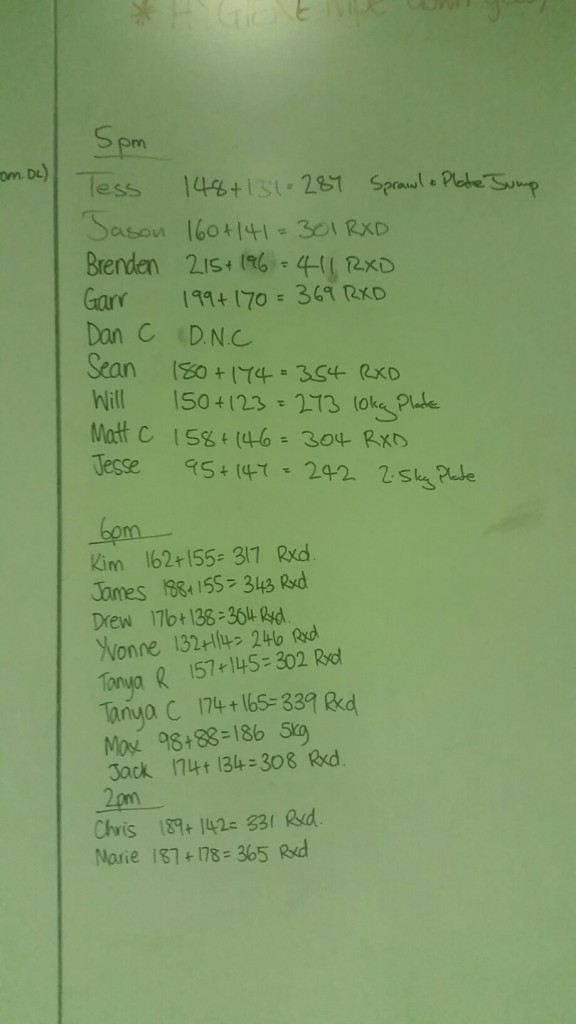 * HYGIENE wipe down
5pm
om. DL)
Tess 148+131= 287 Sprawl + Plate Jump
Jason 160+141 = 301 RXD
Brenden 215+196 = 411 RXD
Garr 199+170 = 369 RXD
Dan C D.N.C
Sean 180+174 = 354 RXD
Will 150+123 = 273 10kg Plate
Matt C 158+146 = 304 RXD
Jesse 95+147 = 242 2.5kg Plate
6pm
Kim 162+155= 317 Rxd.
James 188+155= 343 Rxd
Drew 176+138=304 Rxd.
Yvonne 132+114= 246 Rxd
Tanya R 157+145= 302 Rxd
Tanya C 174+165=339 Rxd
Max 98+88=186 5kg
Jack 174+134=308 Rxd.
2pm
Chris 189+142= 331 Rxd.
Marie 187+178= 365 Rxd